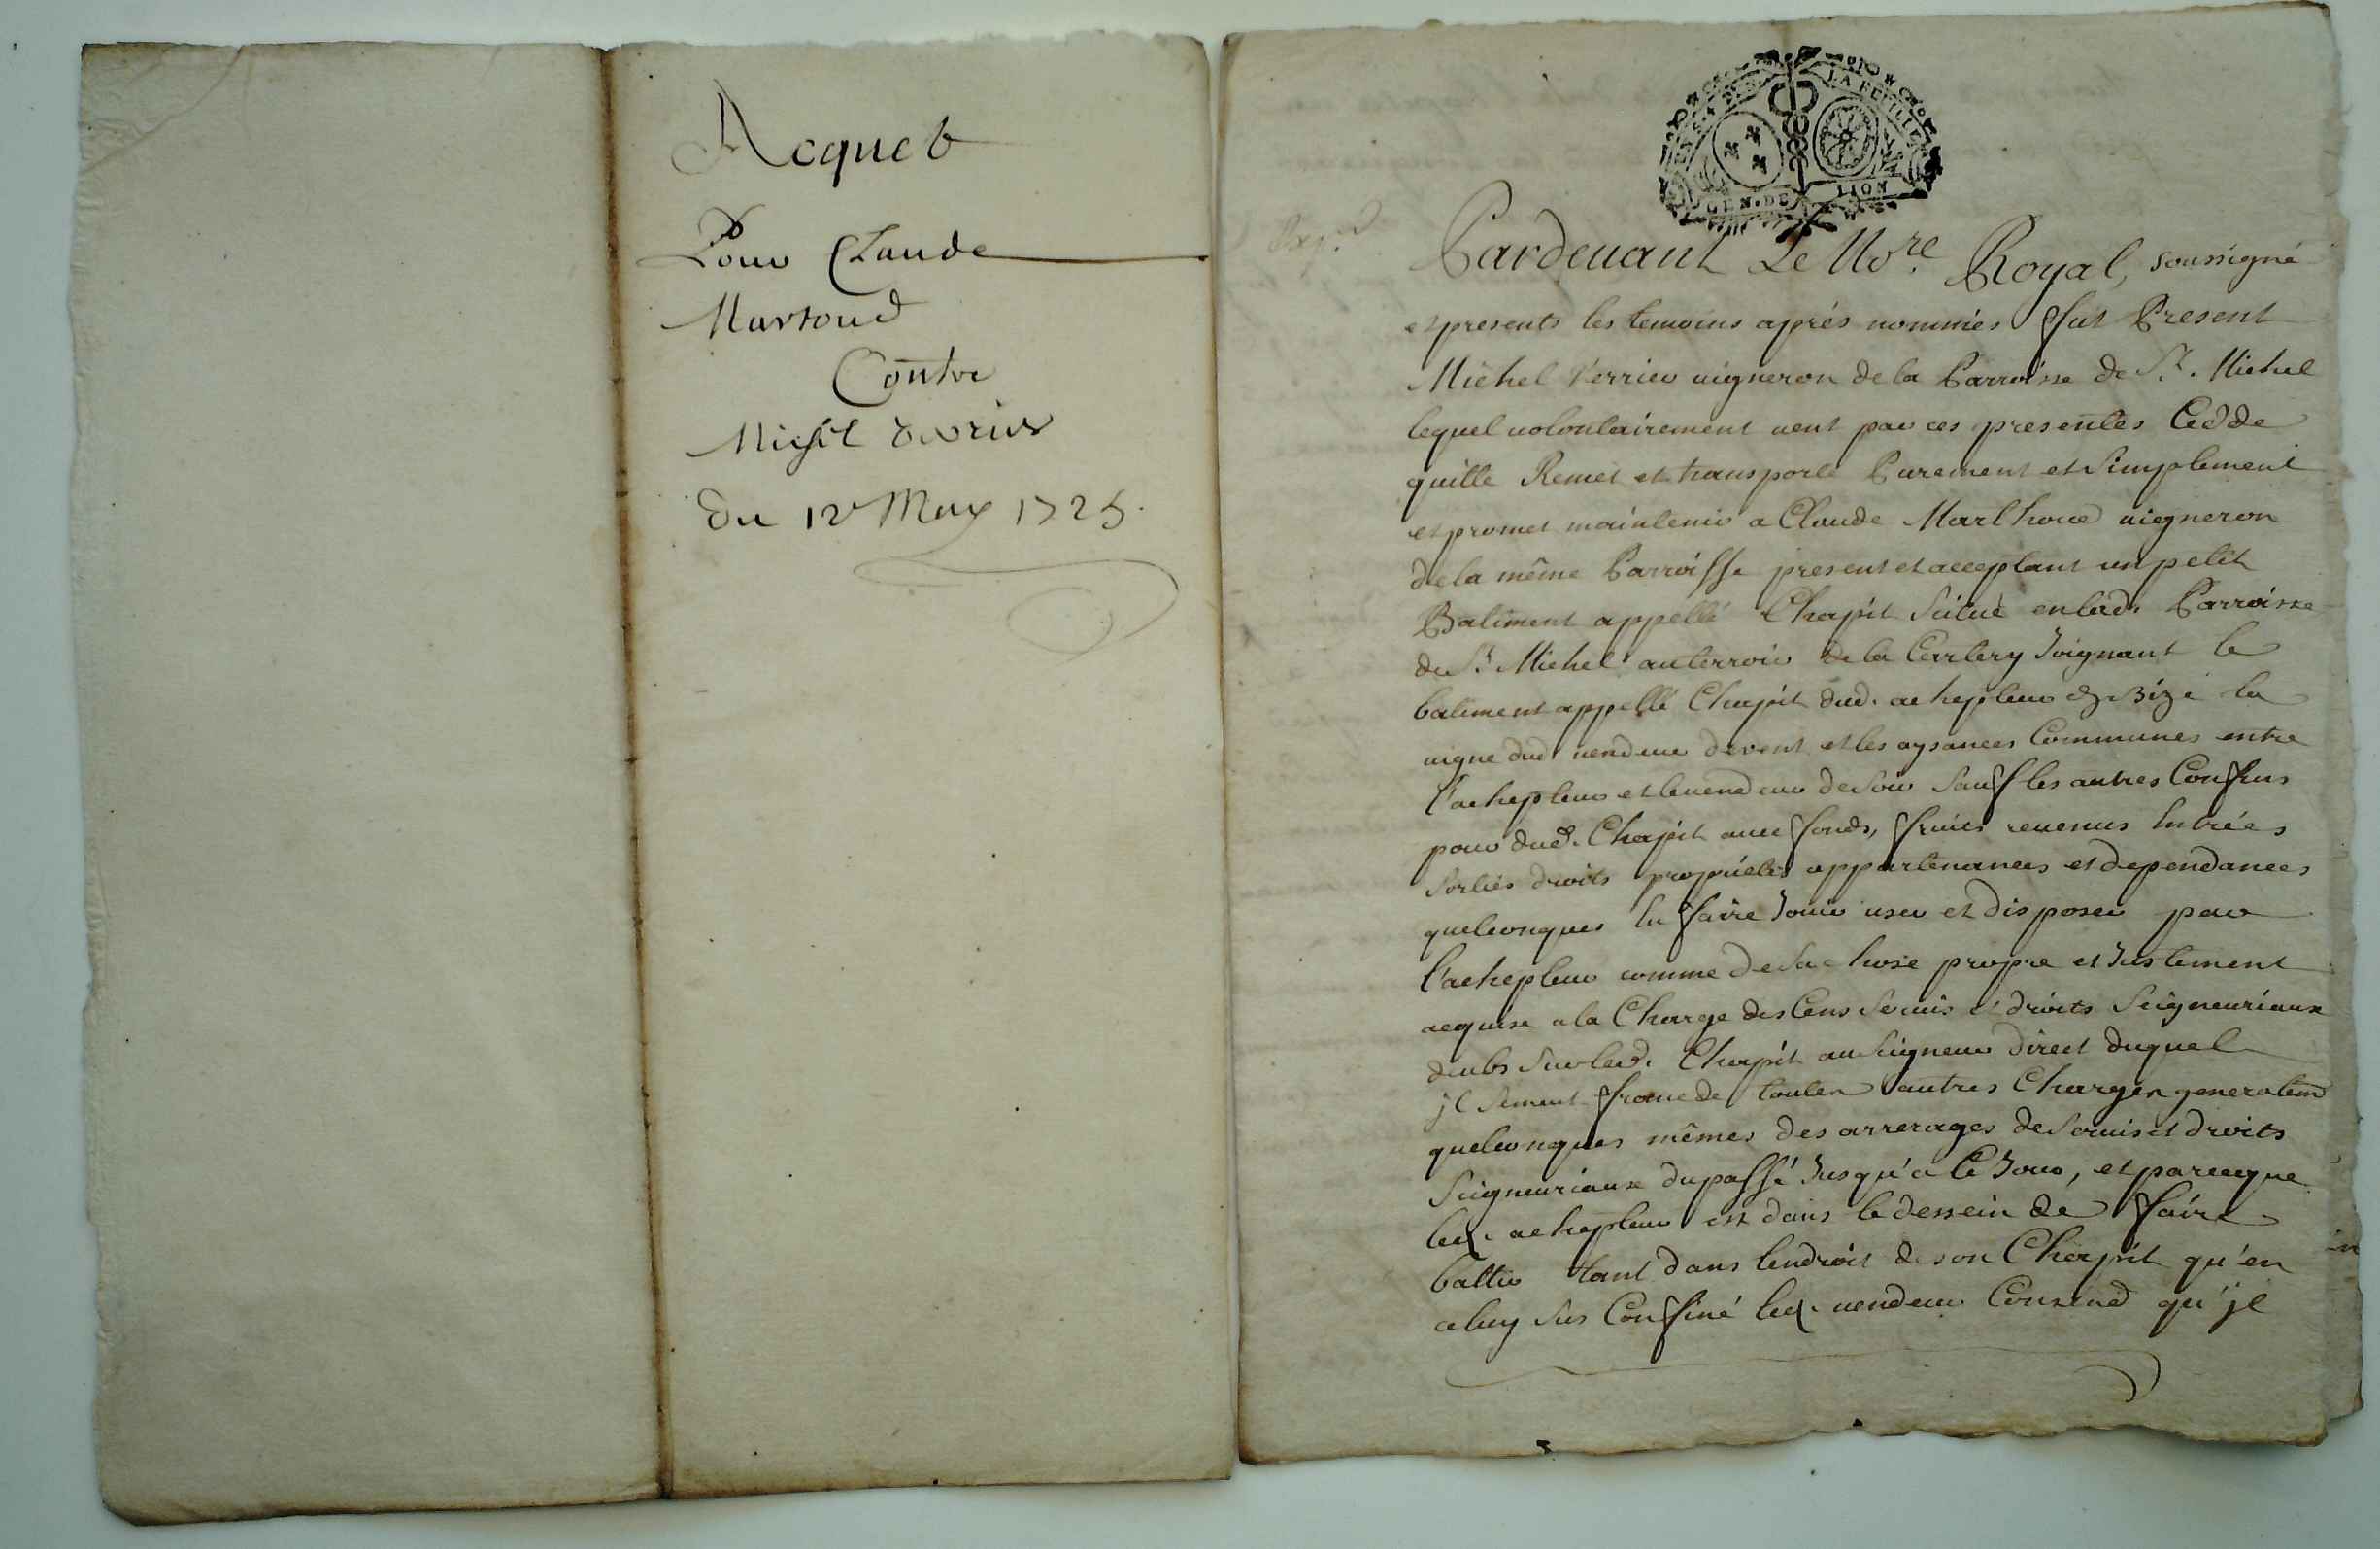 Acquet
Pour Claude
Martoud
Contre
Michel Verrier
du 12 May 1725.
LA FEUILLE
GEN. DE LION
Pardeuant Le No.re Royal, soussigné
et presents les temoins aprés nommés ffut Present
Michel Verrier uigneron de la Parroisse de St. Michel
lequel uolontairement uent par ces presentes Cedde
quitte Remet et transporte Purement et Simplement
et promet maintenir a Claude Marthoud uigneron
de la même Parroisse present et acceptant un petit
Batiment appellé Chapit Scitué en lad. Parroisse
de St Michel au terroir de la Joignant le
batiment appellé Chapit dud. achepteur de bize la
uigne dud uendeur de uent et les aysances Communes entre
l'achepteur et le uendeur de soir sauf les autres Conffins
pour dud. Chapit auec ffonds, ffruits reuenus Entrées
Sorties droits proprietés appartenances et dependances
quelconques En ffaire Jouir user et disposer par
l'achepteur comme de sa chose propre et Justement
acquise a la Charge des Cens Seruis et droits Seigneuriaux
deubs sur led. Chapit au Seigneur direct duquel
jl se meut ffranc de touttes autres Charges generalem
quelconques mêmes des arrerages de seruis et droits
Seigneuriaux du passé Jusqu'a Ce Jour, et parceque
led. achepteur est dans le dessein de ffaire
battir tant dans lendroit de son Chapit qu'en
celuy sus Conffiné led. uendeur Consend qu'jl